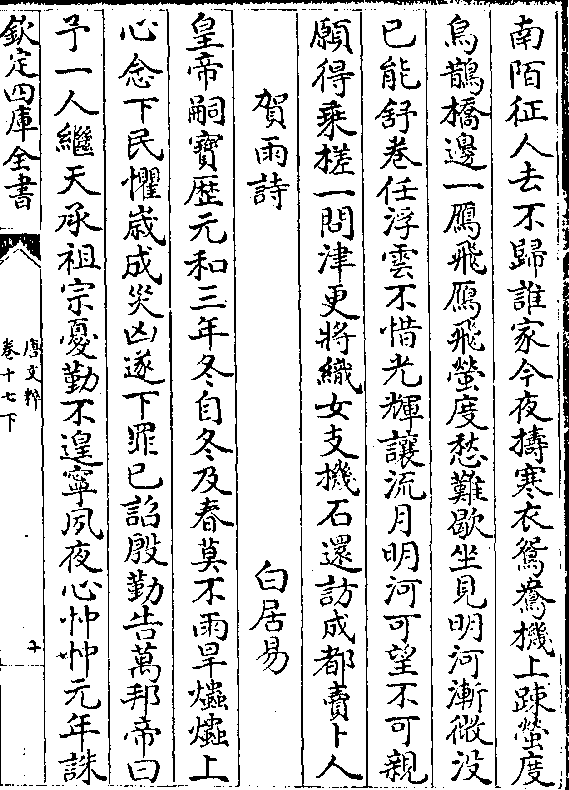 南陌征人去不歸誰家今夜擣寒衣鴛鴦機上踈螢度
烏鵲橋邊一鴈飛鴈飛螢度愁難歇坐見明河漸微没
已能舒卷任浮雲不惜光輝讓流月明河可望不可親
願得乗槎一問津更將織女支機石還訪成都賣卜人
賀雨詩　白居易
皇帝嗣寶歴元和三年冬自冬及春莫不雨旱爞爞上
心念下民懼歳成災凶遂下罪已詔殷勤告萬邦帝曰
予一人繼天承祖宗憂勤不遑寧夙夜心忡忡元年誅
欽定四庫全書
唐文粹
卷十七下
十